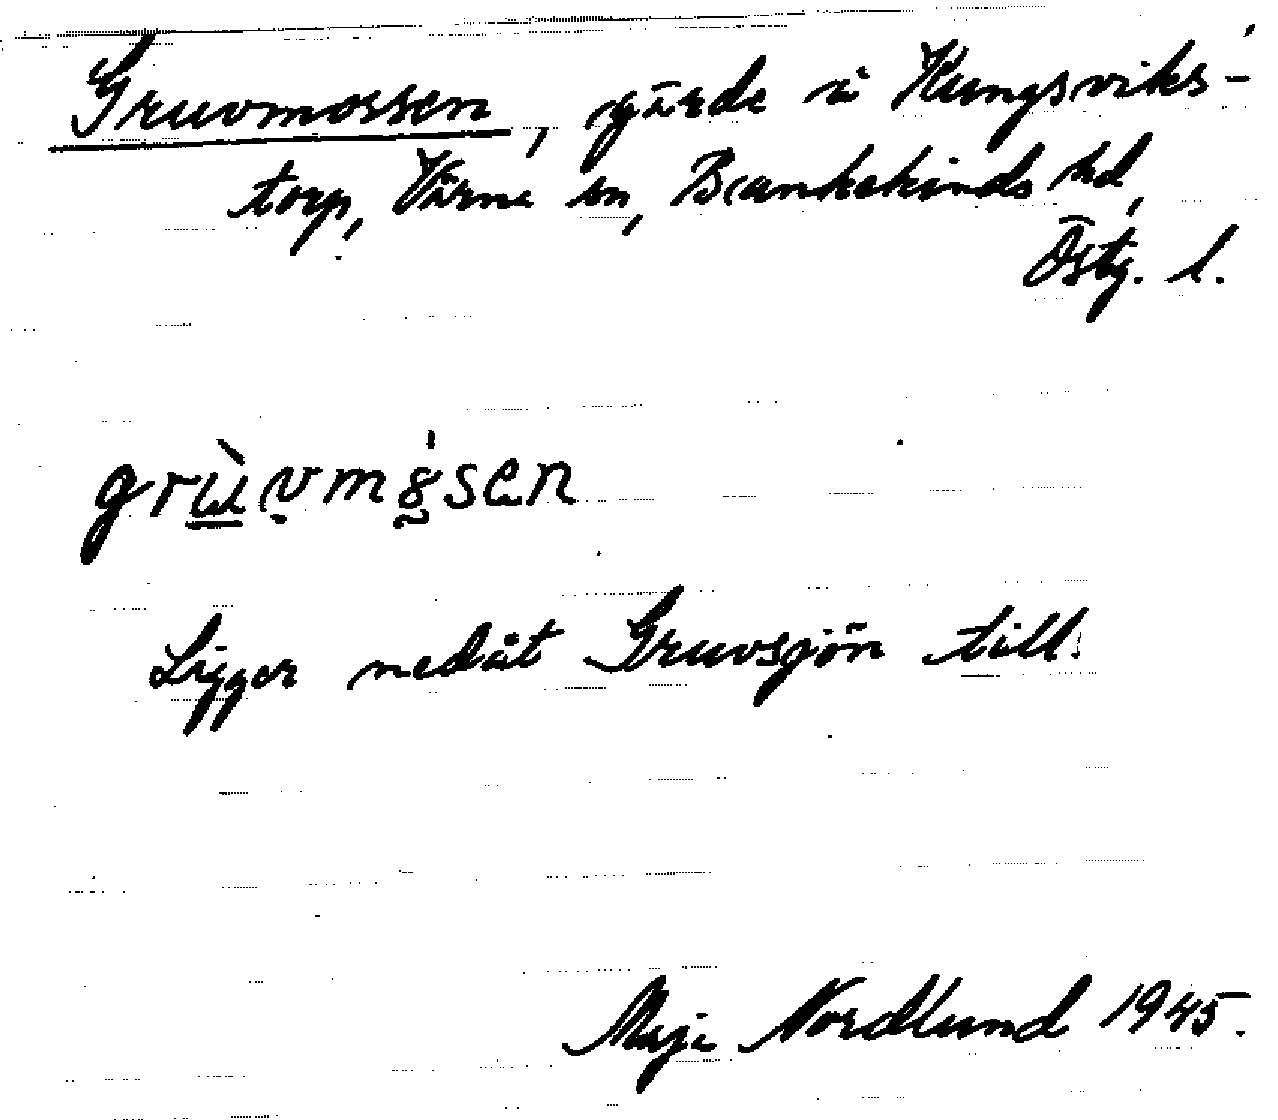 Gruvmossen, gärde i Kungsviks-
torp, Värna sn, Bankekinds hd,
Östg. l.
Ligger nedåt Gruvsjön till.
Maja Nordlund 1945.